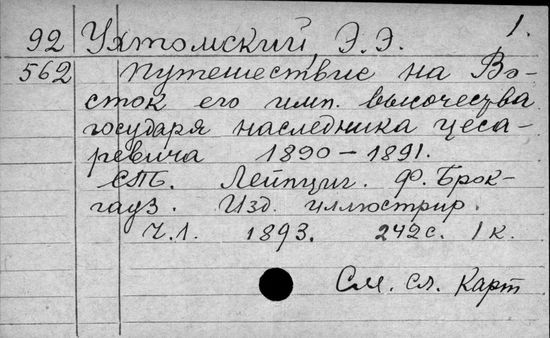 1.
92 Ухтомский, Э.Э.
562 Путешествие на Во-
сток его имп. высочества
государя наследника цеса-
ревича 1890-1891.
СПБ. Лейпциг. Ф. Брок-
гауз. Изд. иллюстрир.
Ч.1. 1893. 242 с. 1 к.
См. сл. карт